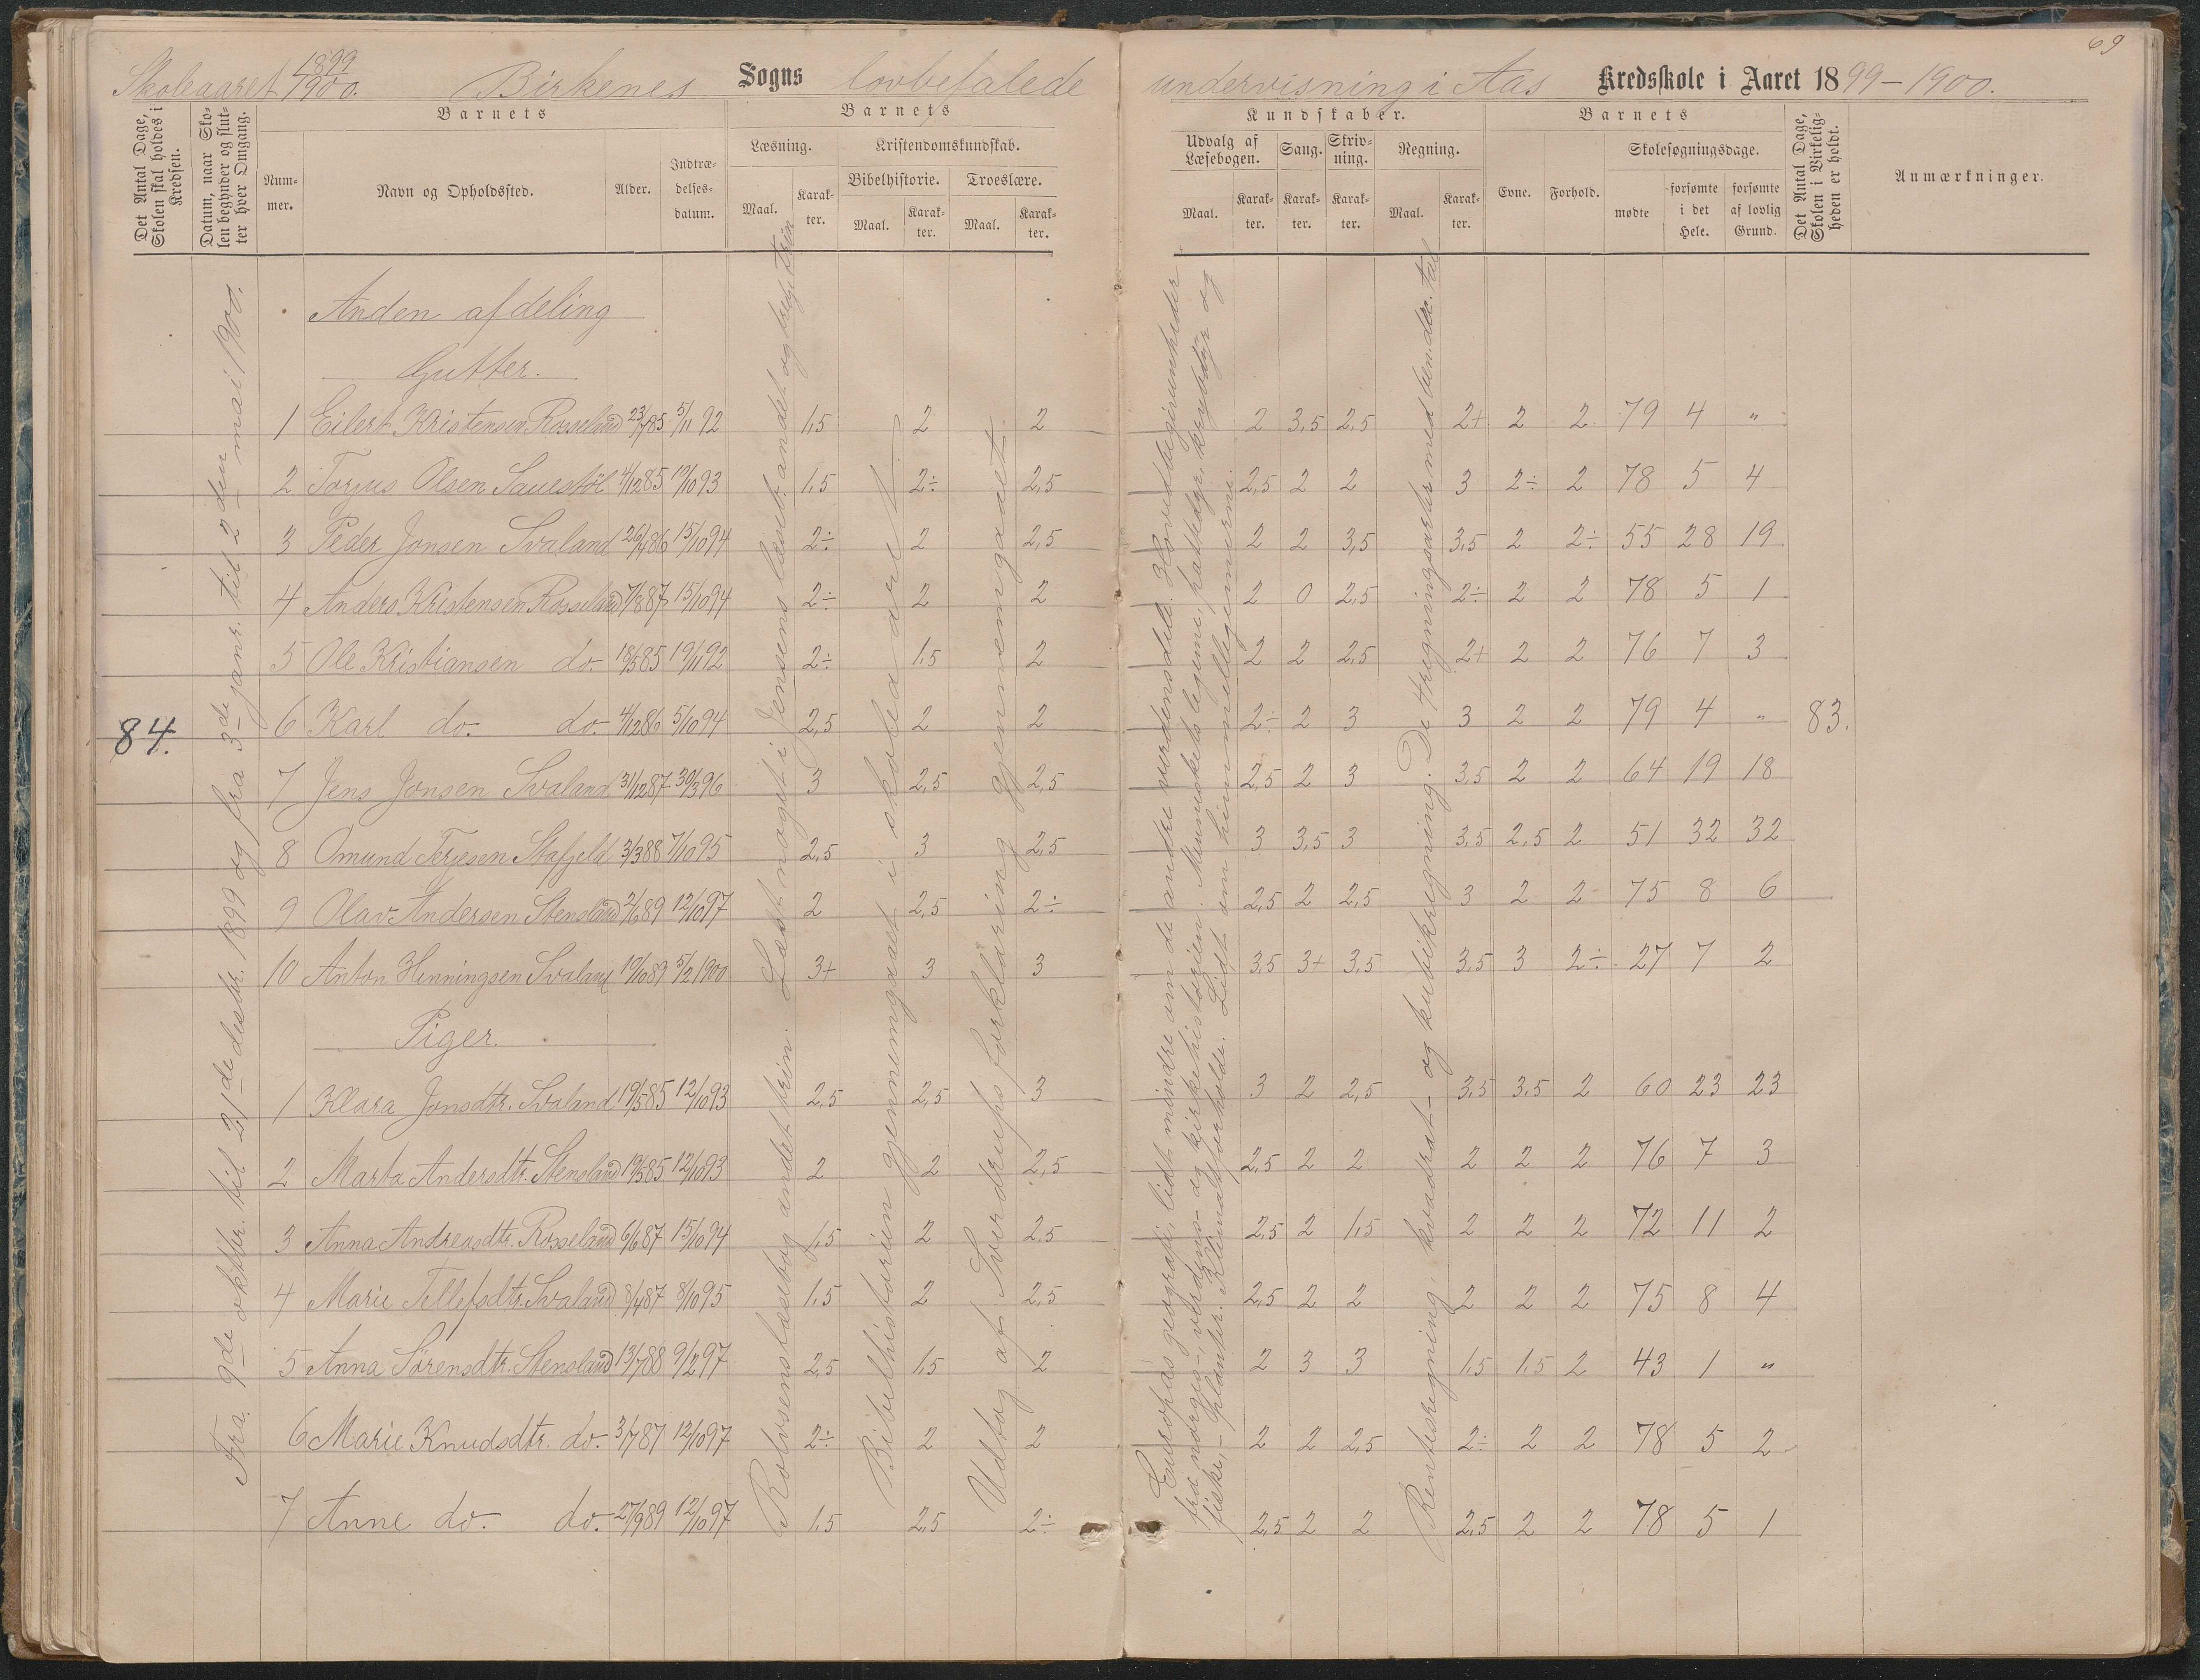 69
Skoleaaret 1899/1900. Birkenes Sogns lovbefalede undervisning i Aas Kredsskole i Aaret 1899–1900.
Det Antal Dage, Skolen skal holdes i Kredsen.
Datum, naar Skolen begynder og slutter hver Omgang.
Barnets
Nummer.
Navn og Opholdssted.
Alder.
Indtrædelsesdatum.
Barnets
Læsning.
Maal.
Karakter.
Kristendomskundskab.
Bibelhistorie.
Maal.
Karakter.
Troeslære.
Maal.
Karakter.
Kundskaber.
Udvalg af Læsebogen.
Maal.
Karakter.
Sang.
Karakter.
Skrivning.
Karakter.
Regning.
Maal.
Karakter.
Barnets
Evne.
Forhold.
Skolesøgningsdage.
mødte
forsømte i det Hele.
forsømte af lovlig Grund.
Det Antal Dage, Skolen i Virkeligheden er holdt.
Anmærkninger.
84.
Fra 9de oktbr. til 21de desbr. 1899 og fra 3de janr. til 2den mai 1900.
Rolvsens læsebog andet trin. Læst noget i Jensens læseb. andet og tredje trin
Bibelhistorien gjennemgaaet i skoleaaret.
Udtog af Sverdrups forklaring gjennemgaaet.
Europas geografi, lidt mindre om de andre verdensdele. Hovedbegivenheder
fra norges-, verdens- og kirkehistorien. Menneskets legeme, pattedyr, krybdyr og
fiske,- planter. Klimatforholde. Lidt om himmellegemerne.
Rentesregning, kvadrat- og kubikregning. De 4 regningsarter med ben. dec. tal
83.
Anden afdeling
Gutter.
1 Eilert Kristensen Rosseland 23/7 85 5/11 92 1,5 2 2 2 3,5 2,5 2+ 2 2 79 4 "
2 Torjus Olsen Sauestøl 4/12 85 19/10 93 1,5 2÷ 2,5 2,5 2 2 3 2÷ 2 78 5 4
3 Peder Jonsen Svaland 26/4 86 15/10 94 2÷ 2 2,5 2 2 3,5 3,5 2 2÷ 55 28 19
4 Anders Kristensen Rosseland 7/8 87 15/10 94 2÷ 2 2 2 0 2,5 2÷ 2 2 78 5 1
5 Ole Kristiansen do. 18/5 85 19/11 92 2÷ 1,5 2 2 2 2,5 2+ 2 2 76 7 3
6 Karl do. do. 4/12 86 5/10 94 2,5 2 2 2÷ 2 3 3 2 2 79 4 "
7 Jens Jonsen Svaland 31/12 87 30/3 96 3 2,5 2,5 2,5 2 3 3,5 2 2 64 19 18
8 Omund Terjesen Stafjeld 3/3 88 7/10 95 2,5 3 2,5 3 3,5 3 3,5 2,5 2 51 32 32
9 Olav Andersen Stensland 2/6 89 12/10 97 2 2,5 2÷ 2,5 2 2,5 3 2 2 75 8 6
10 Anton Henningsen Svaland 19/10 89 5/2 1900 3+ 3 3 3,5 3+ 3,5 3,5 3 2÷ 27 7 2
Piger.
1 Klara Jonsdtr. Svaland 19/5 85 12/10 93 2,5 2,5 3 3 2 2,5 3,5 3,5 2 60 23 23
2 Marta Andersdtr. Stensland 19/5 85 12/10 93 2 2 2,5 2,5 2 2 2 2 2 76 7 3
3 Anna Andreasdtr. Rosseland 6/6 87 15/10 94 1,5 2 2,5 2,5 2 1,5 2 2 2 72 11 2
4 Marie Tellefsdtr. Svaland 8/4 87 8/10 95 1,5 2 2,5 2,5 2 2 2 2 2 75 8 4
5 Anna Sørensdtr. Stensland 13/7 88 9/2 97 2,5 1,5 2 2 3 3 1,5 1,5 2 43 1 "
6 Marie Knudsdtr. do. 3/7 87 12/10 97 2÷ 2 2 2 2 2,5 2÷ 2 2 78 5 2
7 Anne do. do. 27/9 89 12/10 97 1,5 2,5 2÷ 2,5 2 2 2,5 2 2 78 5 1